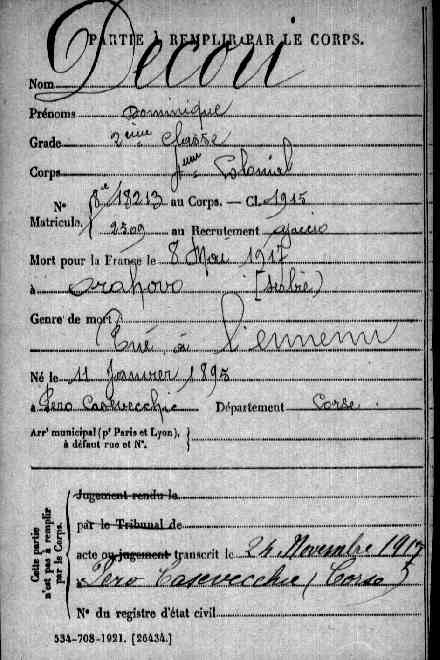 PARTIE À REMPLIR PAR LE CORPS.
Nom Decori
Prénoms Dominique
Grade 2ème Classe
Corps Colonial
N° Matricule. 8e 18213 au Corps. — Cl. 1915
2309 au Recrutement Ajaccio
Mort pour la France le 8 Mai 1917
à Orahovo (Serbie)
Genre de mort
Tué à l'ennemi
Né le 11 Janvier 1895
à Pero Casevecchie Département Corse
Arrt municipal (pr Paris et Lyon),
à défaut rue et N°.
Cette partie n'est pas à remplir par le Corps.
Jugement rendu le
par le Tribunal de
acte ou jugement transcrit le 24 Novembre 1917
à Pero Casevecchie (Corse)
N° du registre d'état civil
534-708-1921. [26434.]